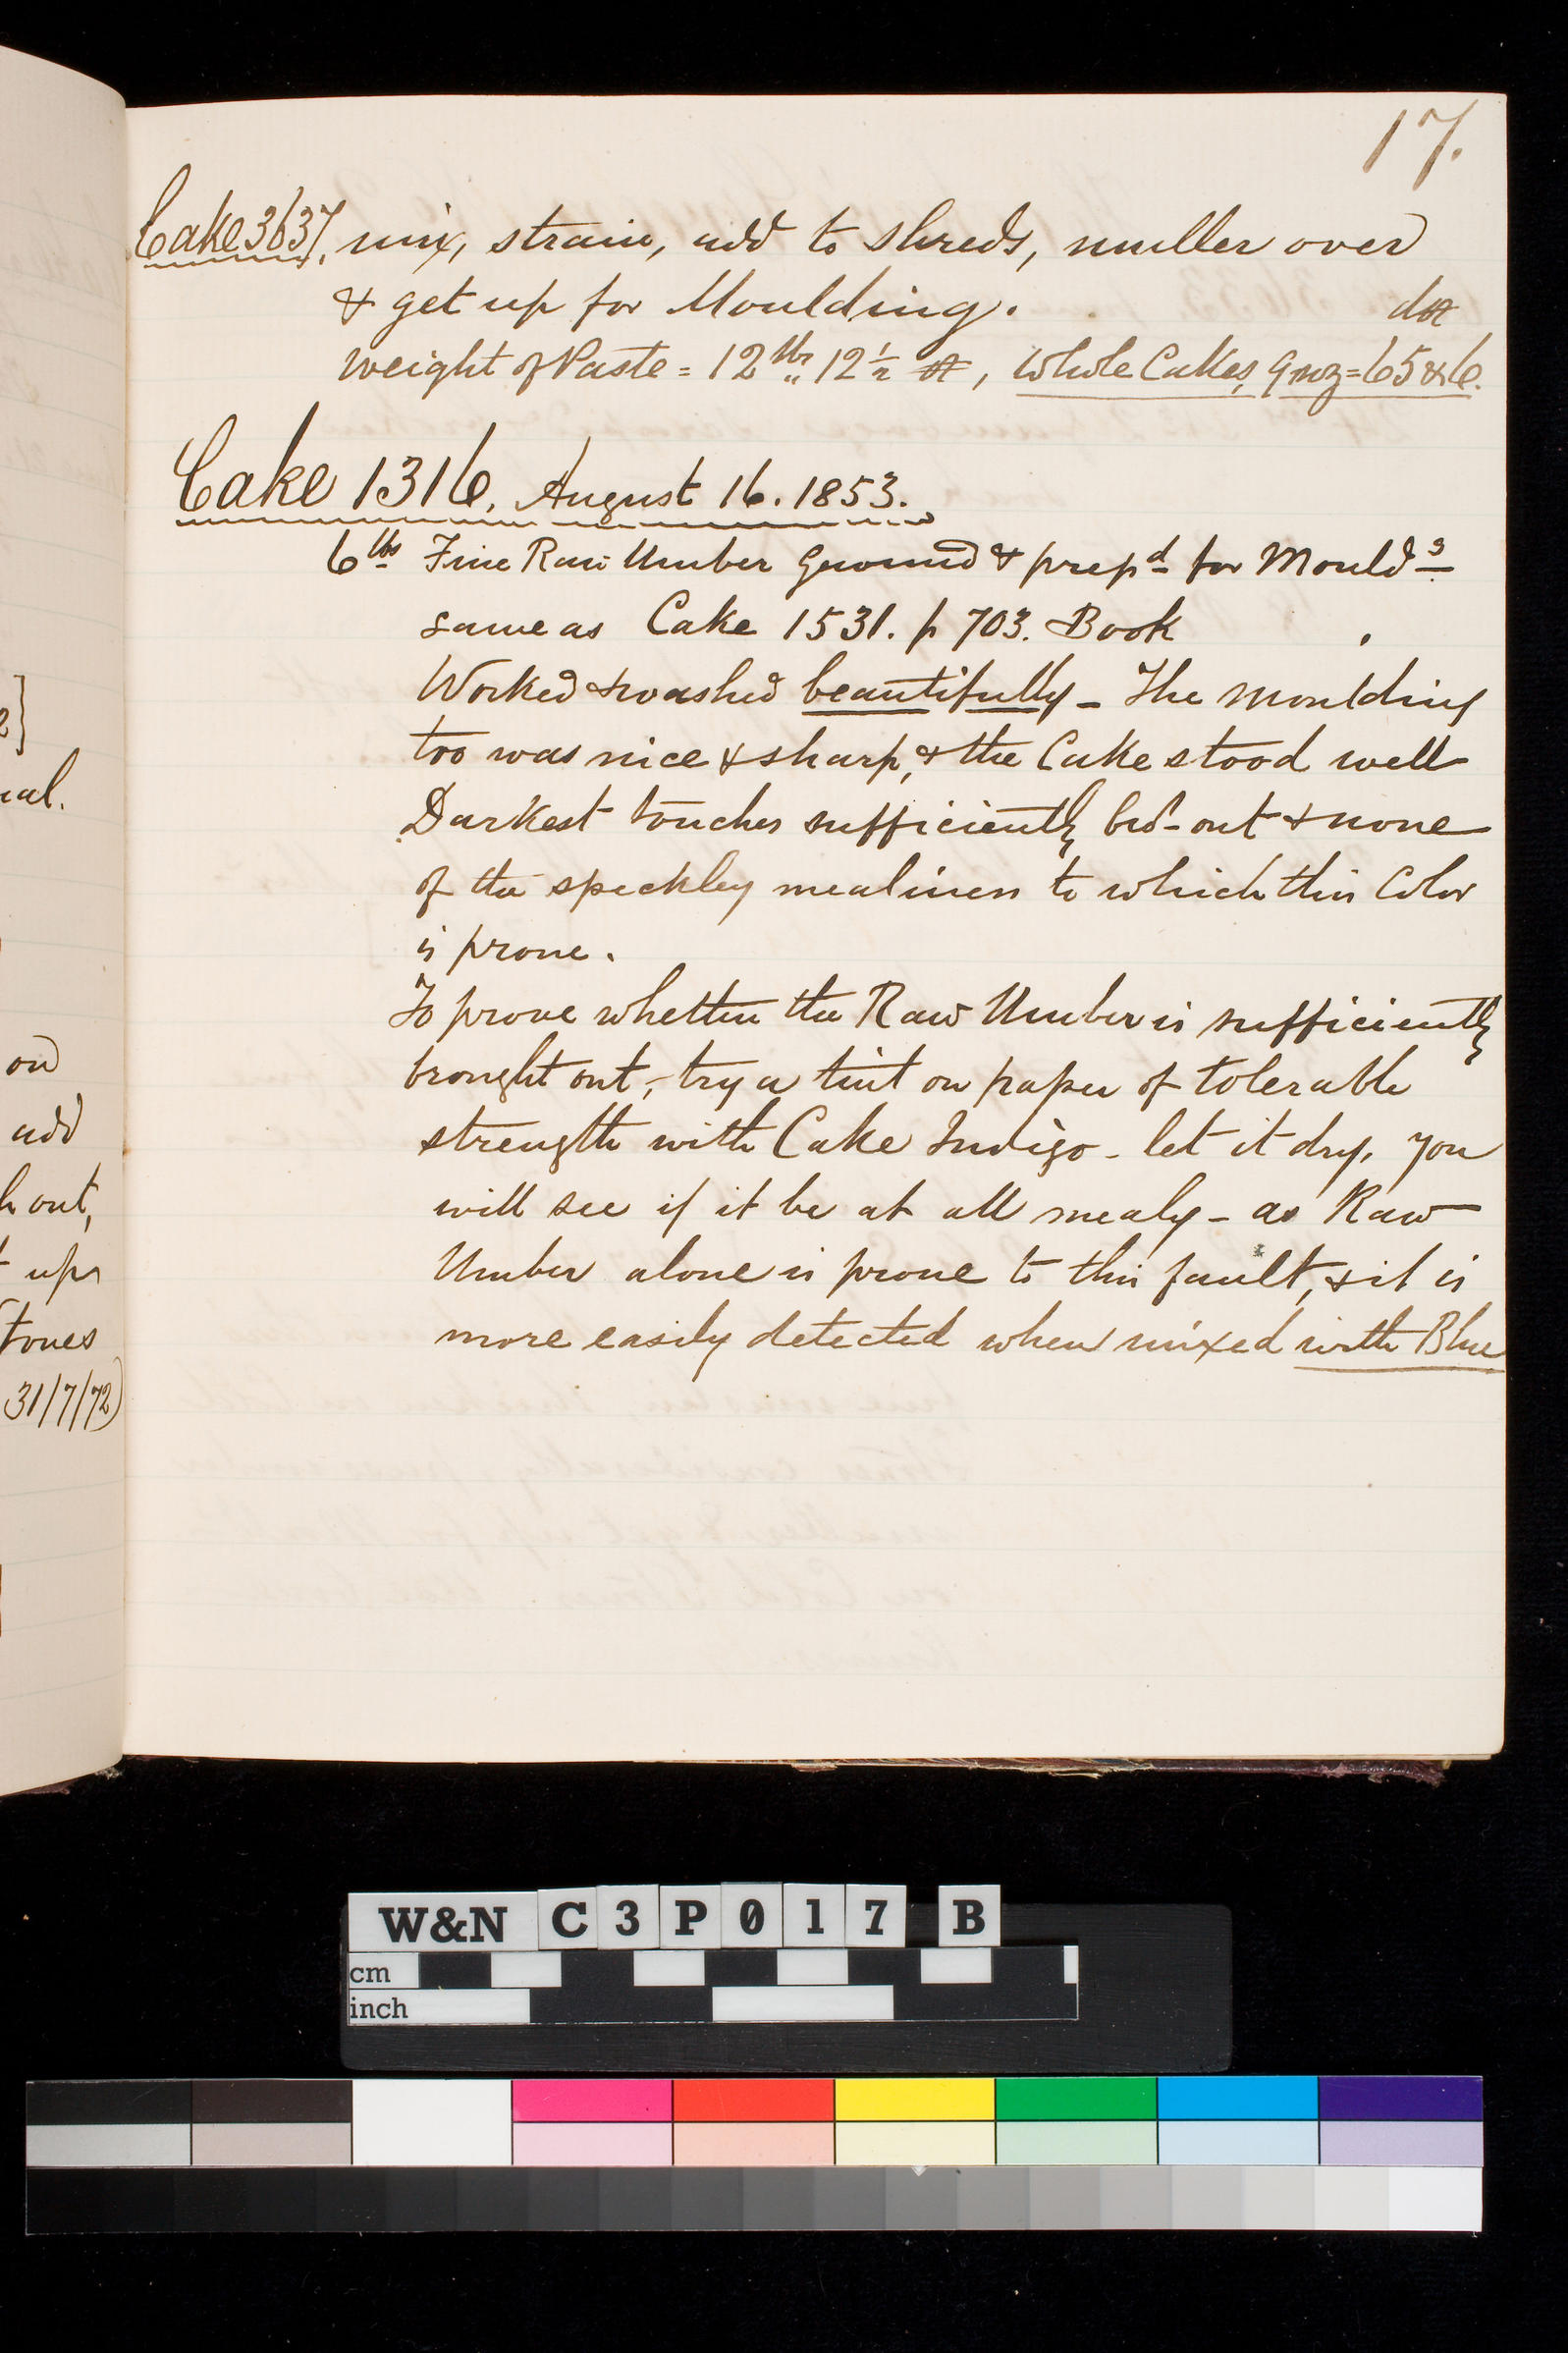 17.
Cake 3637, mix, strain, add to shreds, muller over
& get up for Moulding.
Weight of Paste = 12 lbs 12 1/2, Whole Cakes, = 65 & 6.
Cake 1316, August 16. 1853.
6 lbs Fine Raw Umber Ground & prepd for Mouldg
same as Cake 1531. p 703. Book
Worked & washed beautifully - The moulding
too was nice & sharp, & the Cake stood well
Darkest touches sufficiently bro-out & none
of the speckley mealiness to which this Color
is prone.
To prove whether the Raw Umber is sufficiently
brought out, - try a tint on paper of tolerable
strength with Cake Indigo - let it dry, you
will see if it be at all mealy - as Raw
Umber alone is prone to this fault, & it is
more easily detected when mixed with Blue
2]
ial.
on
add
h out,
t up
tones
31/7/72)
W&N C3P017 B
cm
inch